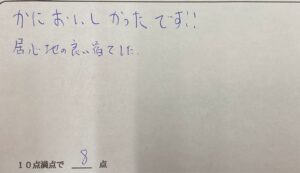 かにおいしかったです!!
居心地の良い宿でした.
10点満点で 8 点